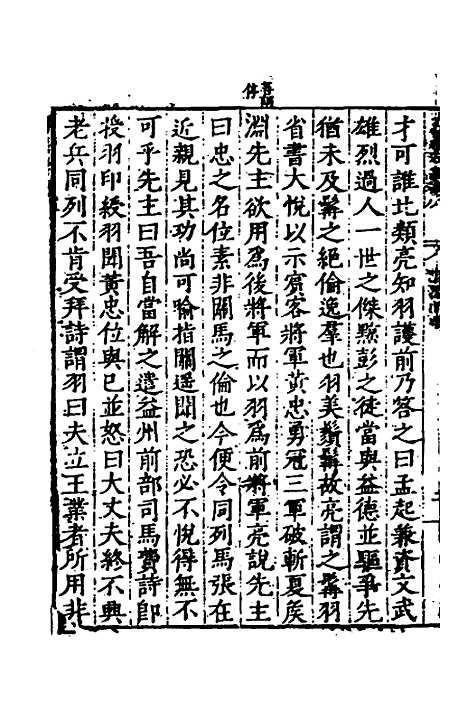 才可誰比類亮知羽護前乃答之曰孟起兼資文武
雄烈過人一世之傑黥彭之徒當與益德並驅爭先
猶未及髯之絕倫逸羣也羽美鬚髯故亮謂之髯羽
省書大悅以示賓客將軍黃忠勇冠三軍破斬夏侯
淵先主欲用爲後將軍而以羽爲前將軍亮說先主
曰忠之名位素非關馬之倫也今便令同列馬張在
近親見其功尚可喻指關遥聞之恐必不悅得無不
可乎先主曰吾自當解之遣益州前部司馬費詩卽
授羽印綬羽聞黃忠位與己並怒曰大丈夫終不與
老兵同列不肯受拜詩謂羽曰夫立王業者所用非